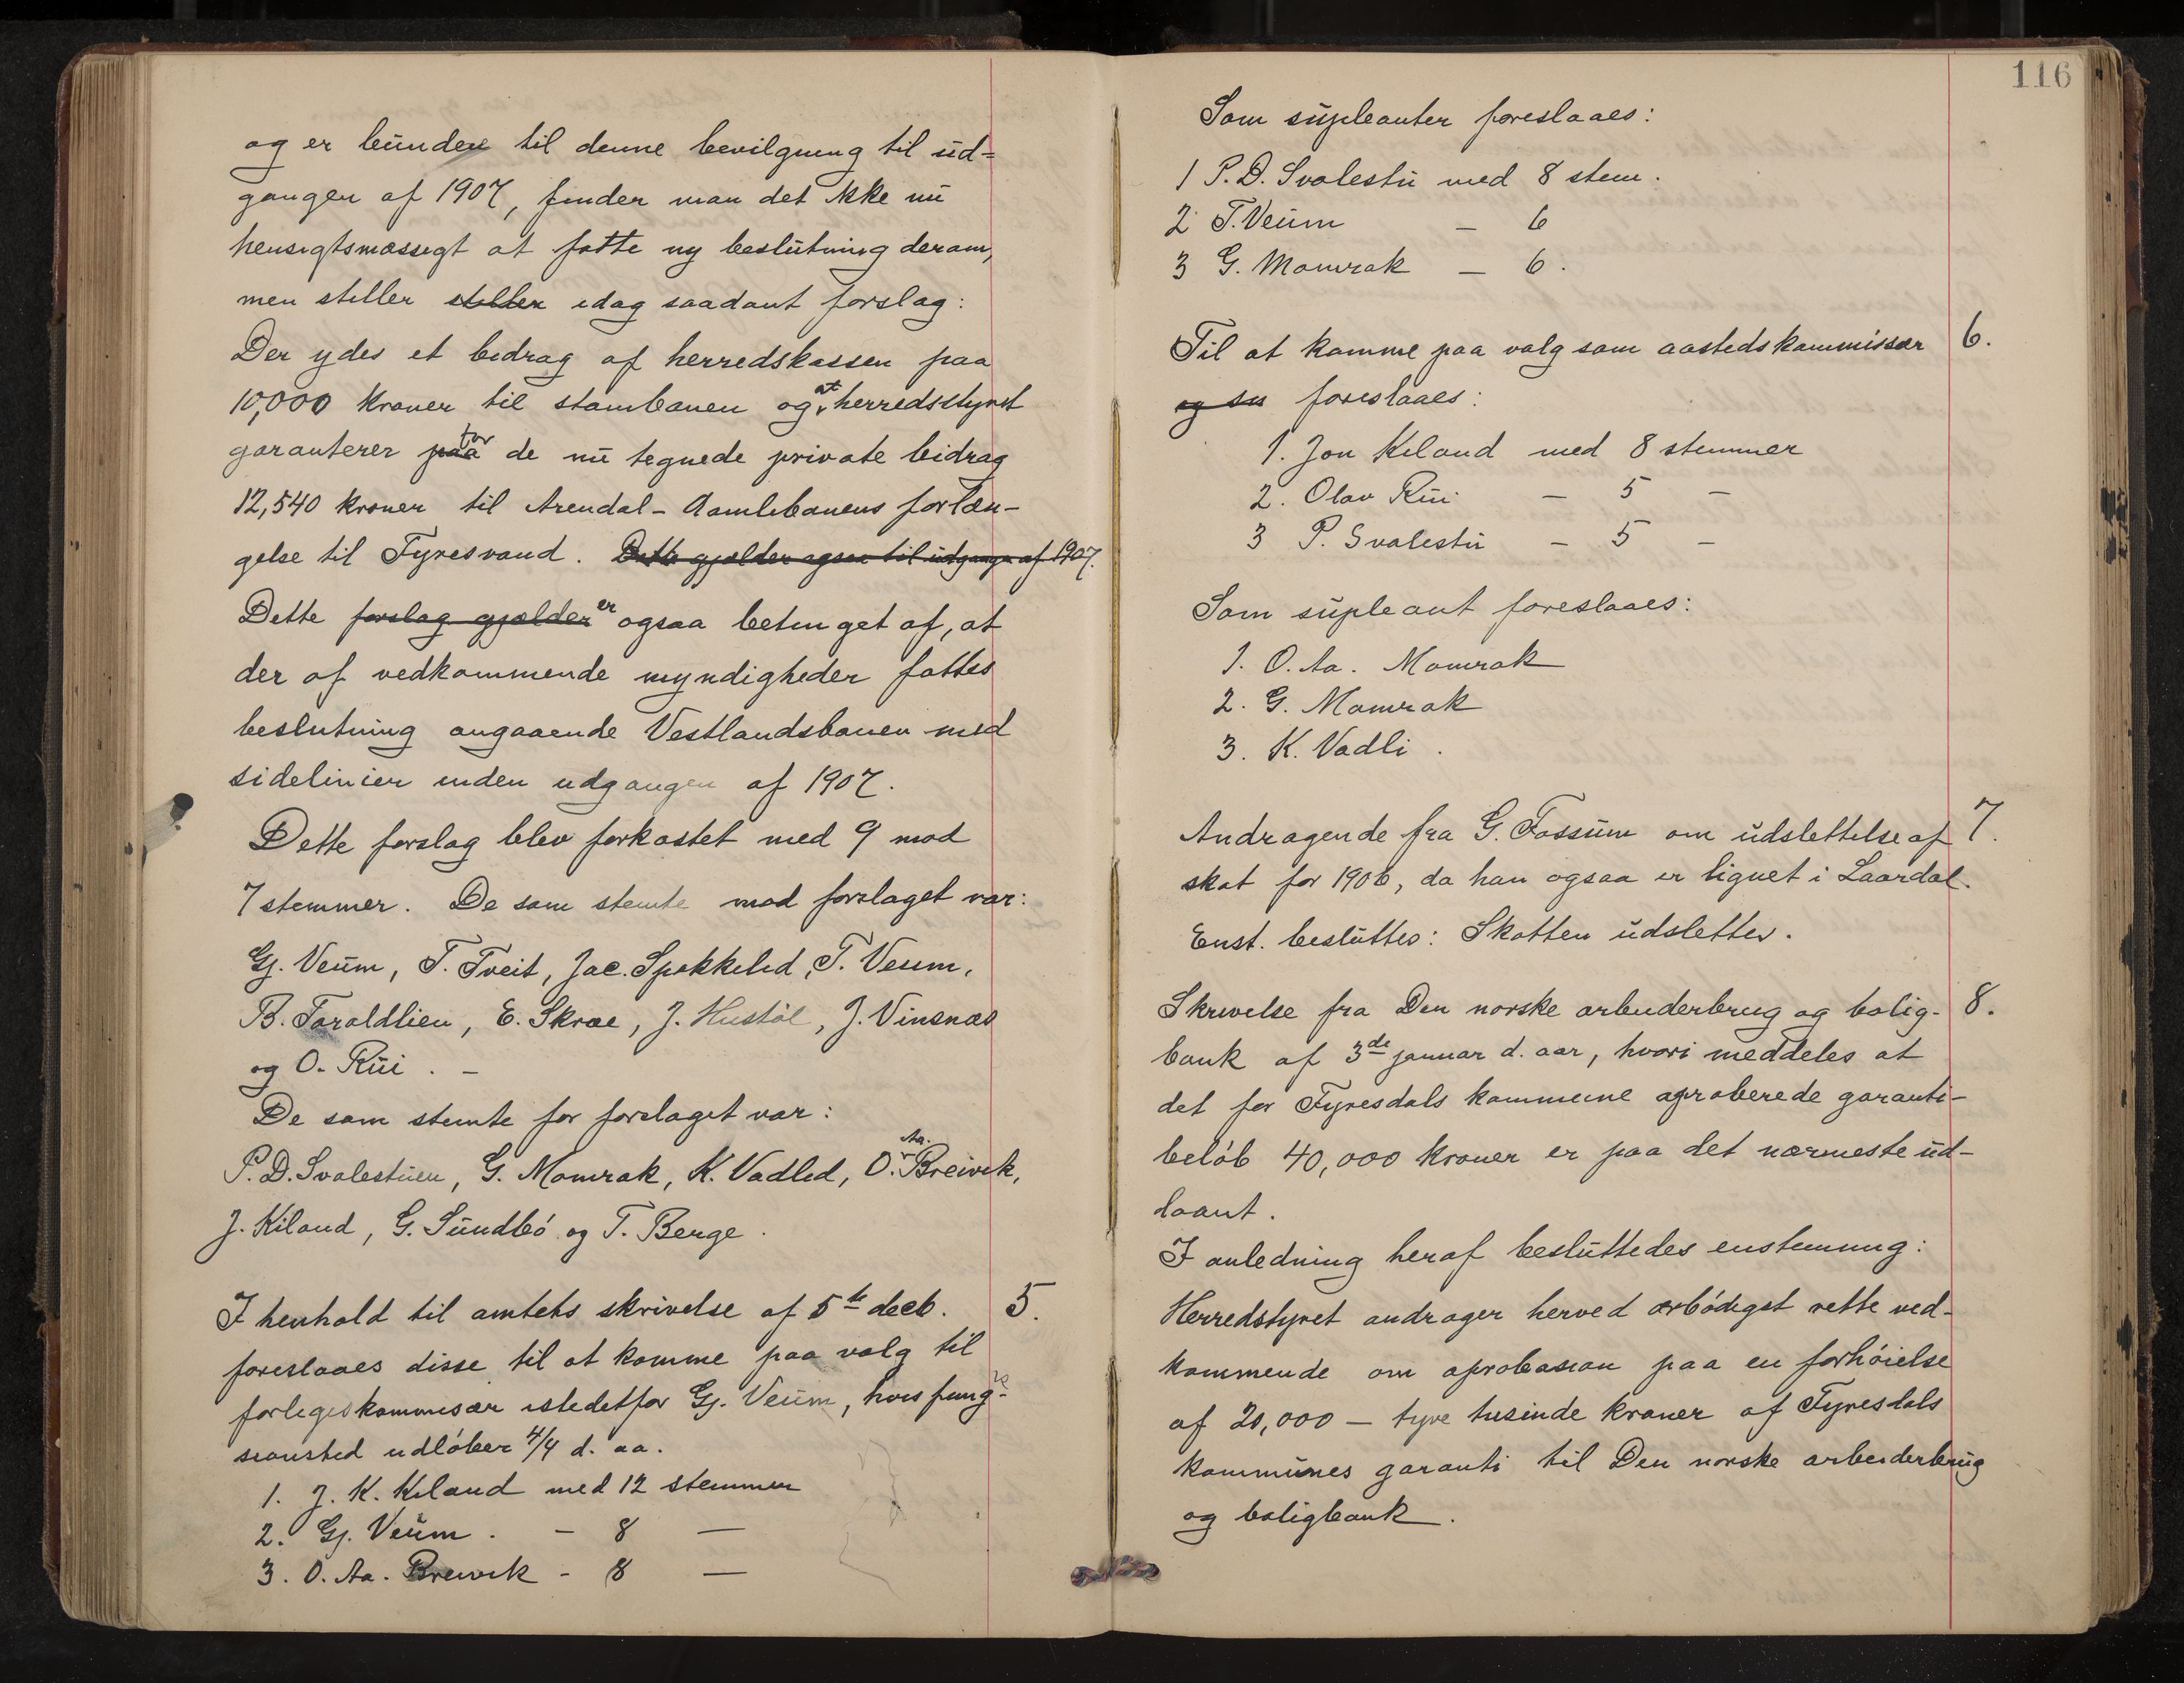 og er bunden til denne bevilgning til ud-
gangen af 1907, finder man det ikke nu
hensigtsmæssigt at fatte ny beslutning derom,
men stiller stiller idag saadant forslag:
Der ydes et bidrag af herredskassen paa
10,000 kroner til stambanen og at herredsstyret
garanterer paa for de nu tegnede private bidrag
12,540 kroner til Arendal-Aamlibanens forlæn-
gelse til Fyresvand. Dette gjælder ogsaa til udgangen af 1907.
Dette forslag gjælder er ogsaa betinget af, at
der af vedkommende myndigheder fattes
beslutning angaaende Vestlandsbanen med
sidelinier inden udgangen af 1907.
Dette forslag blev forkastet med 9 mod
7 stemmer. De som stemte mod forslaget var:
Gj. Veum, T. Tveit, Jac. Spokkelid, T. Veum,
B. Taraldlien, E. Skræ, J. Hustöl, J. Vinsnæs
og O. Rui. -
De som stemte for forslaget var:
P. D. Svalestuen, G. Momrak, K. Vadlid, O. Aa. Breivik,
J. Kiland, G. Sundbó og T. Berge.
I henhold til amtets skrivelse af 5te decb. 5.
foreslaaes disse til at komme paa valg til
forligskommisær istedetfor Gj. Veum, hvis fung-
sionstid udlóber 4/4 d. aa.
1. J. K. Kiland med 12 stemmer
2. Gj. Veum. - 8 —
3. O. Aa. Breivik - 8 —
116
Som supleanter foreslaaes:
1 P. D. Svalestu med 8 stem.
2 T. Veum — 6
3 G. Momrak — 6.
Til at komme paa valg som aastedskommissær 6.
og su foreslaaes:
1. Jon Kiland med 8 stemmer
2. Olav Rui — 5 —
3 P. Svalestu — 5 —
Som supleant foreslaaes:
1. O. Aa. Momrak
2. G. Momrak
3. K. Vadli.
Andragende fra G. Fossum om udslettelse af 7.
skat for 1906, da han ogsaa er lignet i Laardal.
Enst. besluttes: Skatten udslettes.
Skrivelse fra Den norske arbeiderbrug og bolig- 8.
bank af 3de januar d. aar, hvori meddeles at
det for Fyresdals kommune aproberede garanti-
belób 40,000 kroner er paa det nærmeste ud-
laant.
I anledning heraf besluttedes enstemmig:
Herredstyret andrager herved ærbódigst rette ved-
kommende om aprobasion paa en forhóielse
af 20,000 — tyve tusinde kroner af Fyresdals
kommunes garanti til Den norske arbeiderbrug
og boligbank.